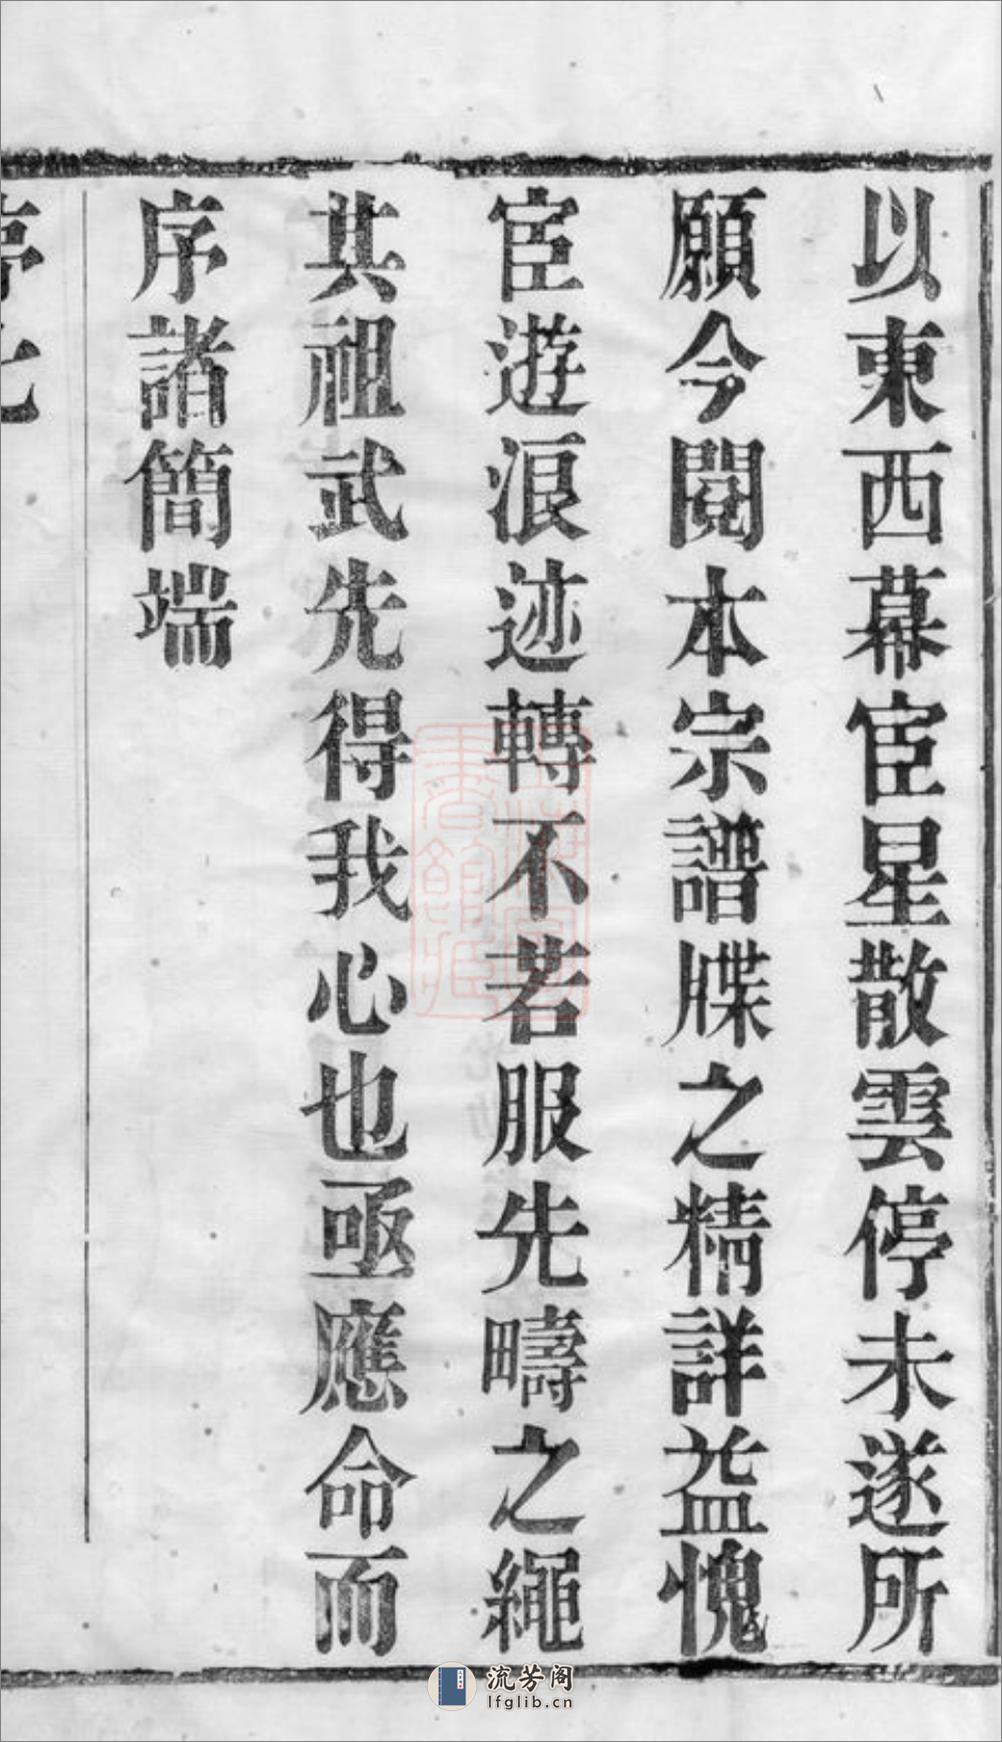 以東西幕宦星散雲停未遂所
願今閱本宗譜牒之精詳益愧
宦遊浪迹轉不若服先疇之繩
其祖武先得我心也亟應命而
序諸簡端
流芳阁
lfglib.cn